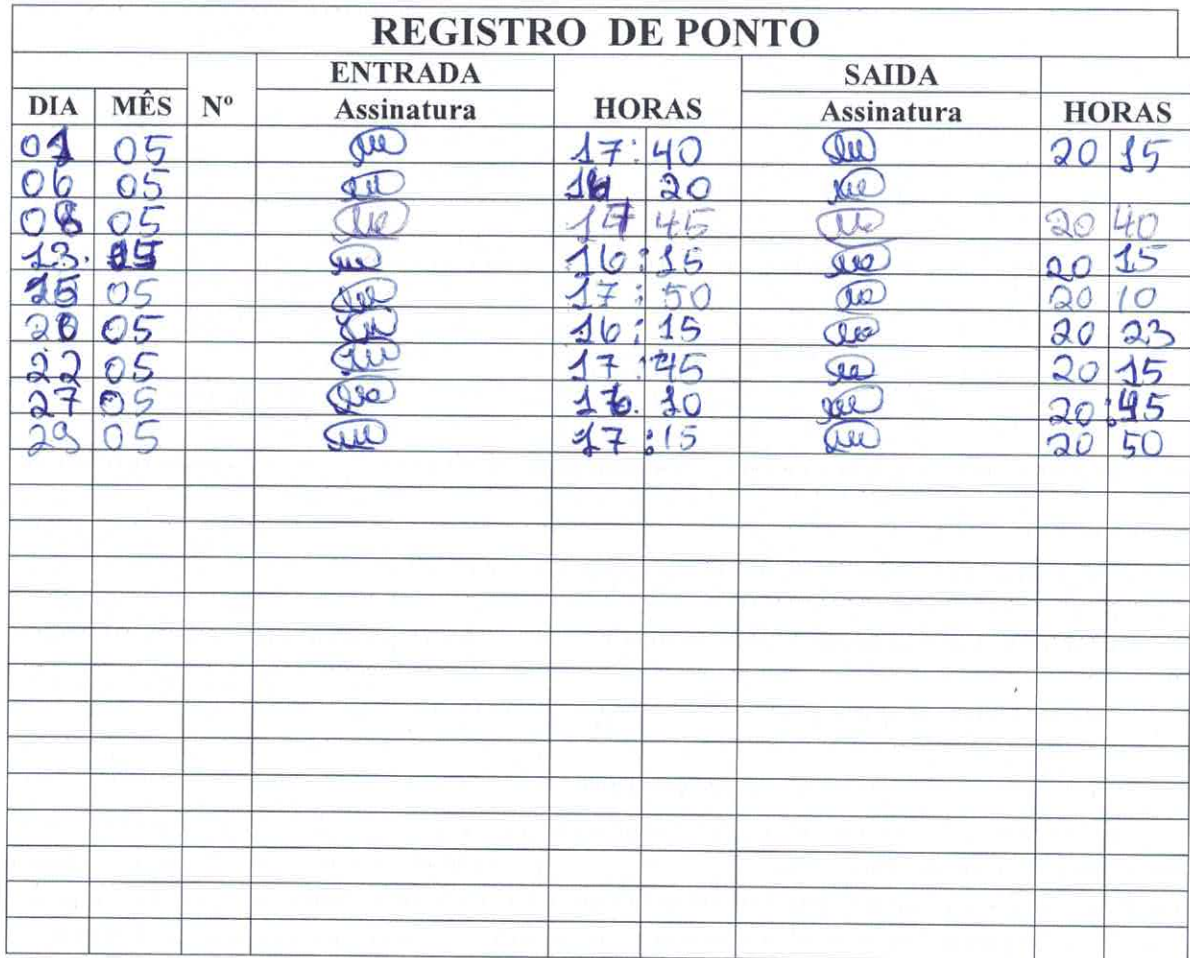 REGISTRO DE PONTO
ENTRADA SAIDA
DIA MÊS Nº Assinatura HORAS Assinatura HORAS
01 05 17:40 20 15
06 05 16 20
08 05 17 45 20 40
13. 05 16:15 20 15
15 05 17:50 20 10
20 05 16:15 20 23
22 05 17:45 20 15
27 05 20:45
29 05 17:15 20 50